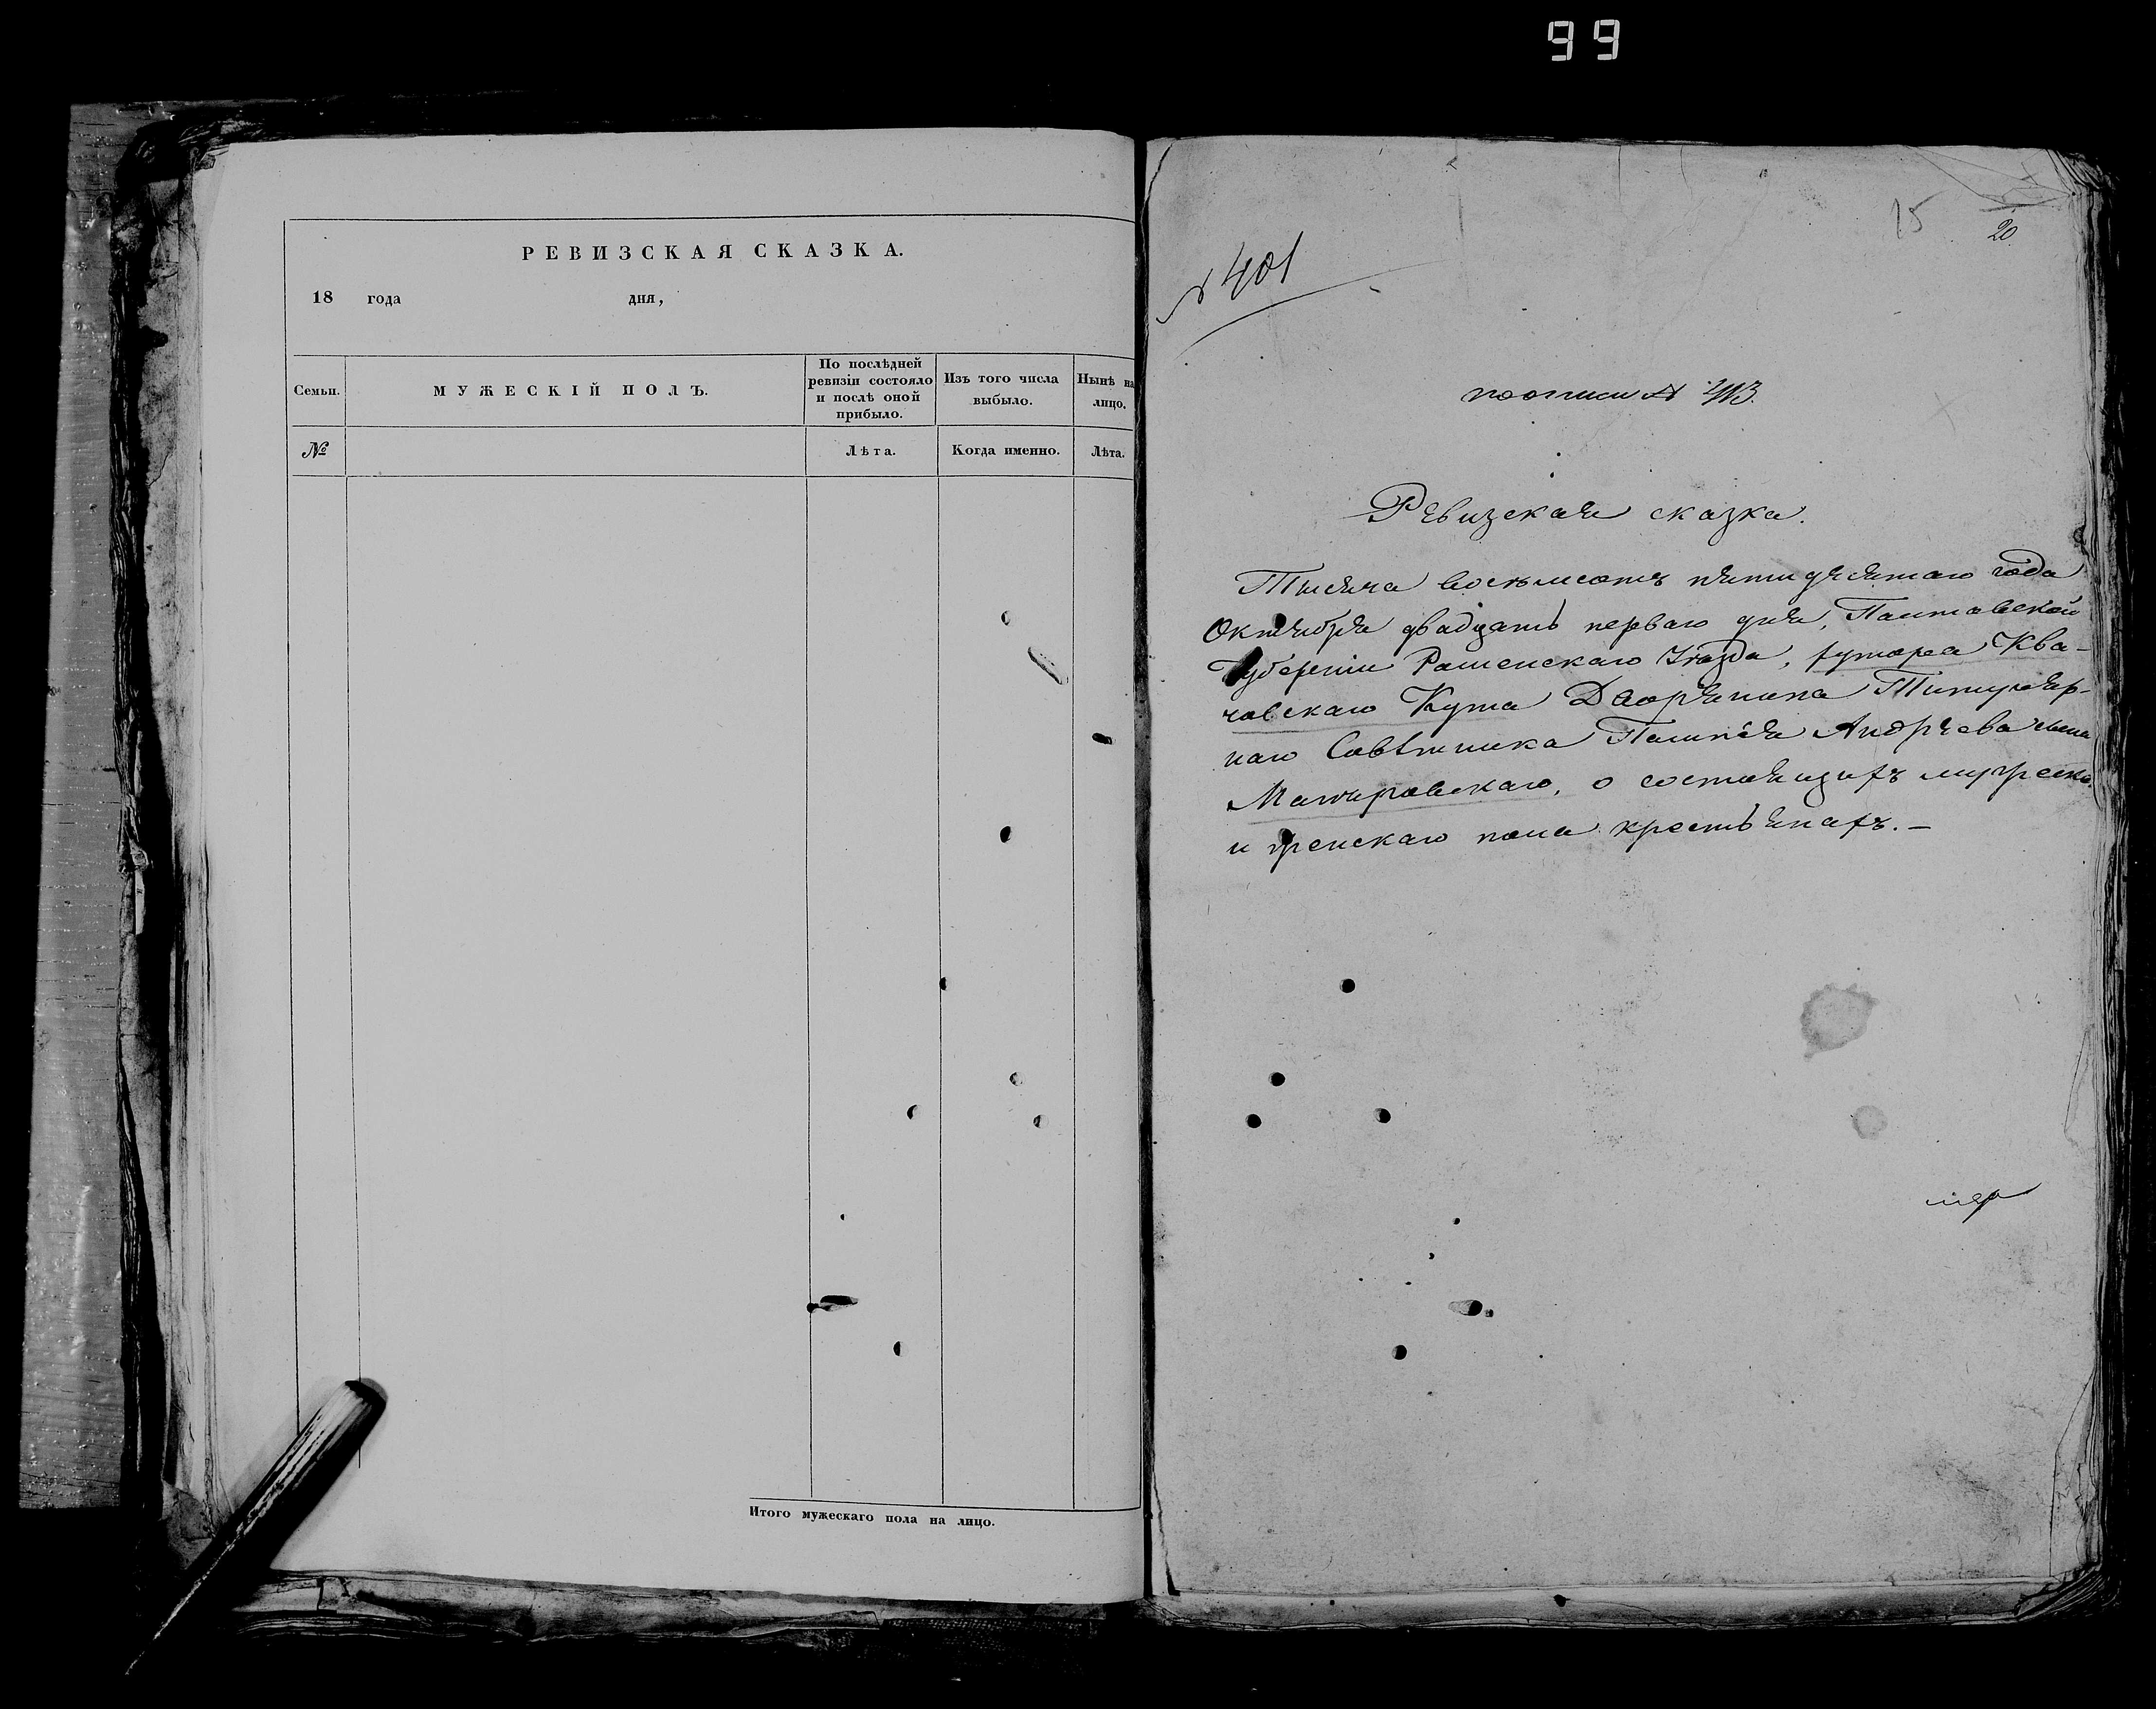 99
РЕВИЗСКАЯ СКАЗКА.
18 года дня,
Семьи.
МУЖЕСКІЙ ПОЛЪ.
По послѣдней
ревизіи состояло
и послѣ оной
прибыло.
Изъ того числа
выбыло.
Нынѣ на
лицо.
№
Лѣта.
Когда именно.
Лѣта.
Итого мужескаго пола на лицо.
15
20
№ 401
по описи №
Ревизская сказка.
Тысяча восемьсотъ пятидесятаго года
Октября двадцать перваго дня, Полтавской
Губерніи Роменскаго Уѣзда, хутора Ква-
човскаго Кута Дворянина Титуляр-
наго Совѣтника Андреева сына
о состоящихъ мужеска
и женскаго пола крестьянахъ.-